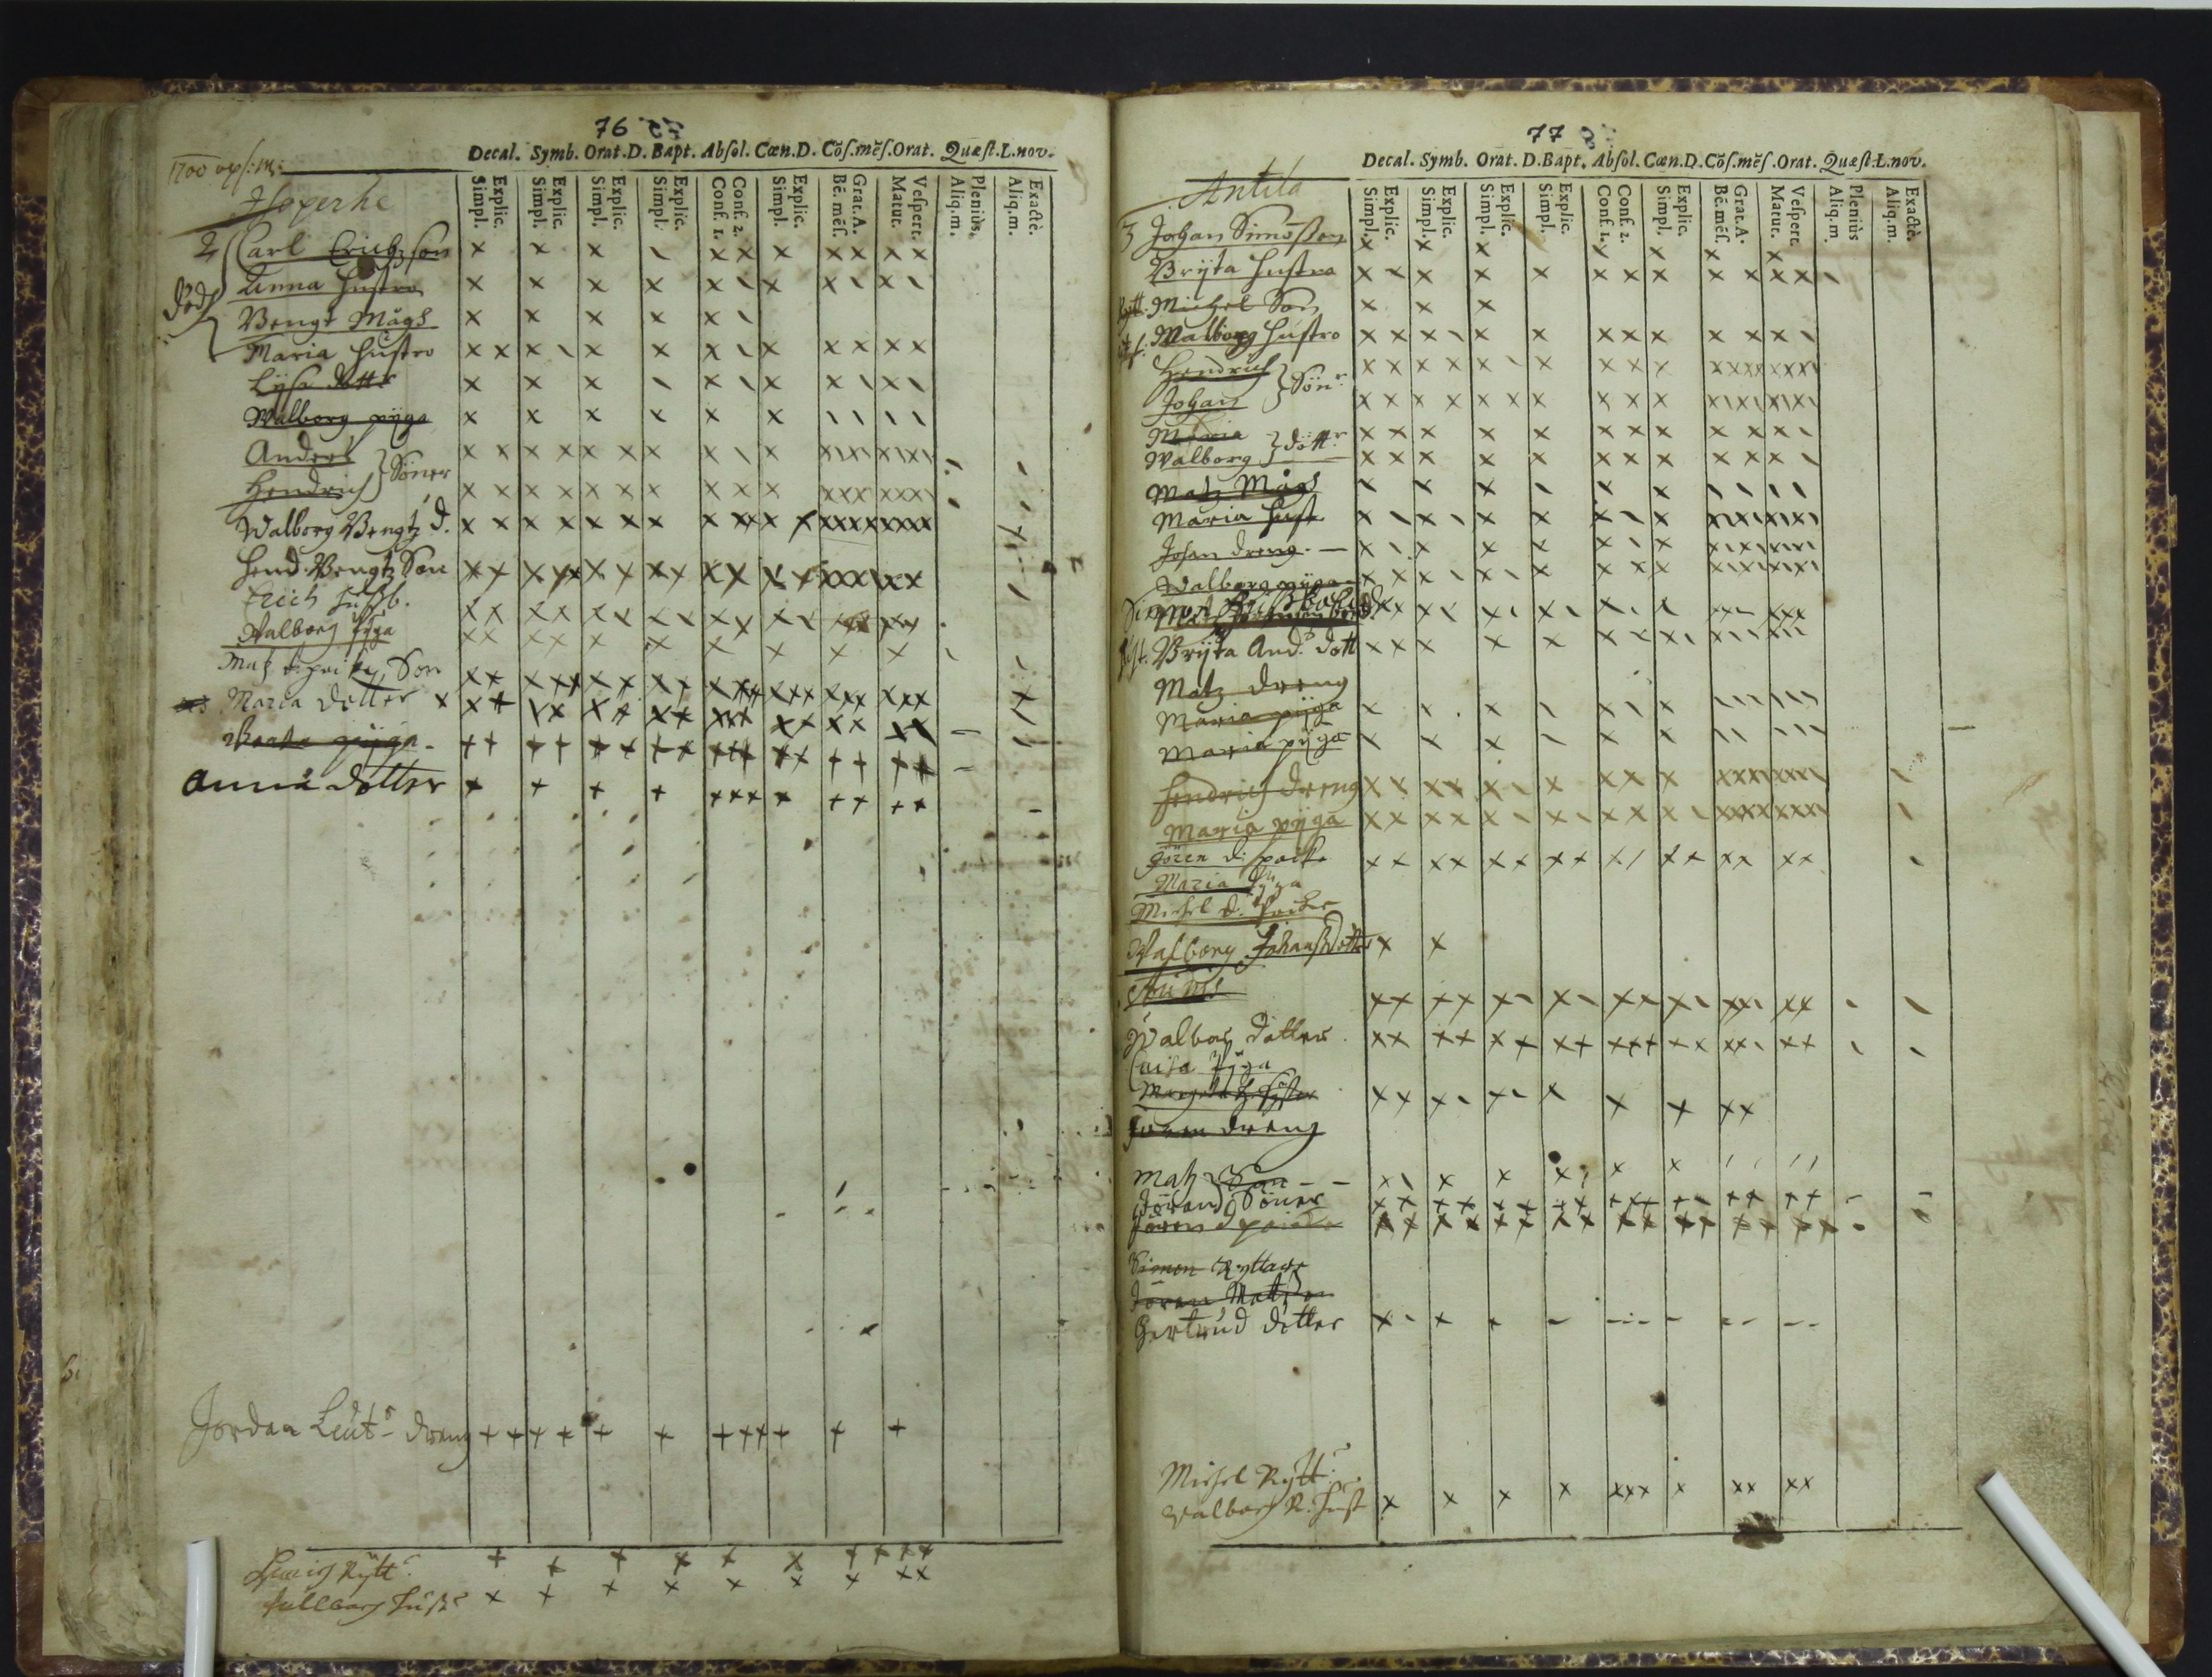 76
Decal. Symb. Orat. D. Bapt. Absol. Cœn. D. Cōs. mēs. Orat. Quæst. L. nov.
Simpl. Explic. Simpl. Explic. Simpl. Explic. Simpl. Explic. Conf. 1. Conf. 2. Simpl. Explic. Bē. mēs. Grat. A. Matut. Vespert. Aliq. m. Pleniùs. Aliq. m. Exactè.
1700
Isoperhe
2 Carl Erichsson
Anna Hustro
död
Bengt Mågh
Maria Hustro
Lijsa dotter
Walborg pijga
Anders } Söner
Hendrich
Walborg Bengtz d.
Hend. Bengtz Son
Erich Hussb.
Walborg Pijga
Matz d. poike, Son
Maria dotter
Beata pijga
Anna dotter
Jordan Leut. dreng
Rytt.
Hust.
77
Decal. Symb. Orat. D. Bapt. Absol. Cœn. D. Cōs. mēs. Orat. Quæst. L. nov.
Simpl. Explic. Simpl. Explic. Simpl. Explic. Simpl. Explic. Conf. 1. Conf. 2. Simpl. Explic. Bē. mēs. Grat. A. Matut. Vespert. Aliq. m. Pleniùs Aliq. m. Exactè.
Antila
3 Johan Simosson
Brijta Hustro
Rytt. Michel Son
Walborg Hustro
Hendrich } Sön.r
Johan
Maria } dött.r
Walborg
Matz Mågh
Maria Hust.
Johan dreng.
Walborg pijga
Simon
Brijta And. dott
Matz dreng
Maria pijga
Maria pijga
Hendrich dreng
Maria pijga
Jören d: poike
Maria Pijga
Michel d. Poike
Walborg Johansdotter
Walbor dotter
Caisa Pijga
Margeta
Jören dreng
Matz Son
Jöran Söner
Jören poike
Simon Ryttare
Jören Matzson
Gertrud dotter
Michel Rytt.
Walborg R. Hust